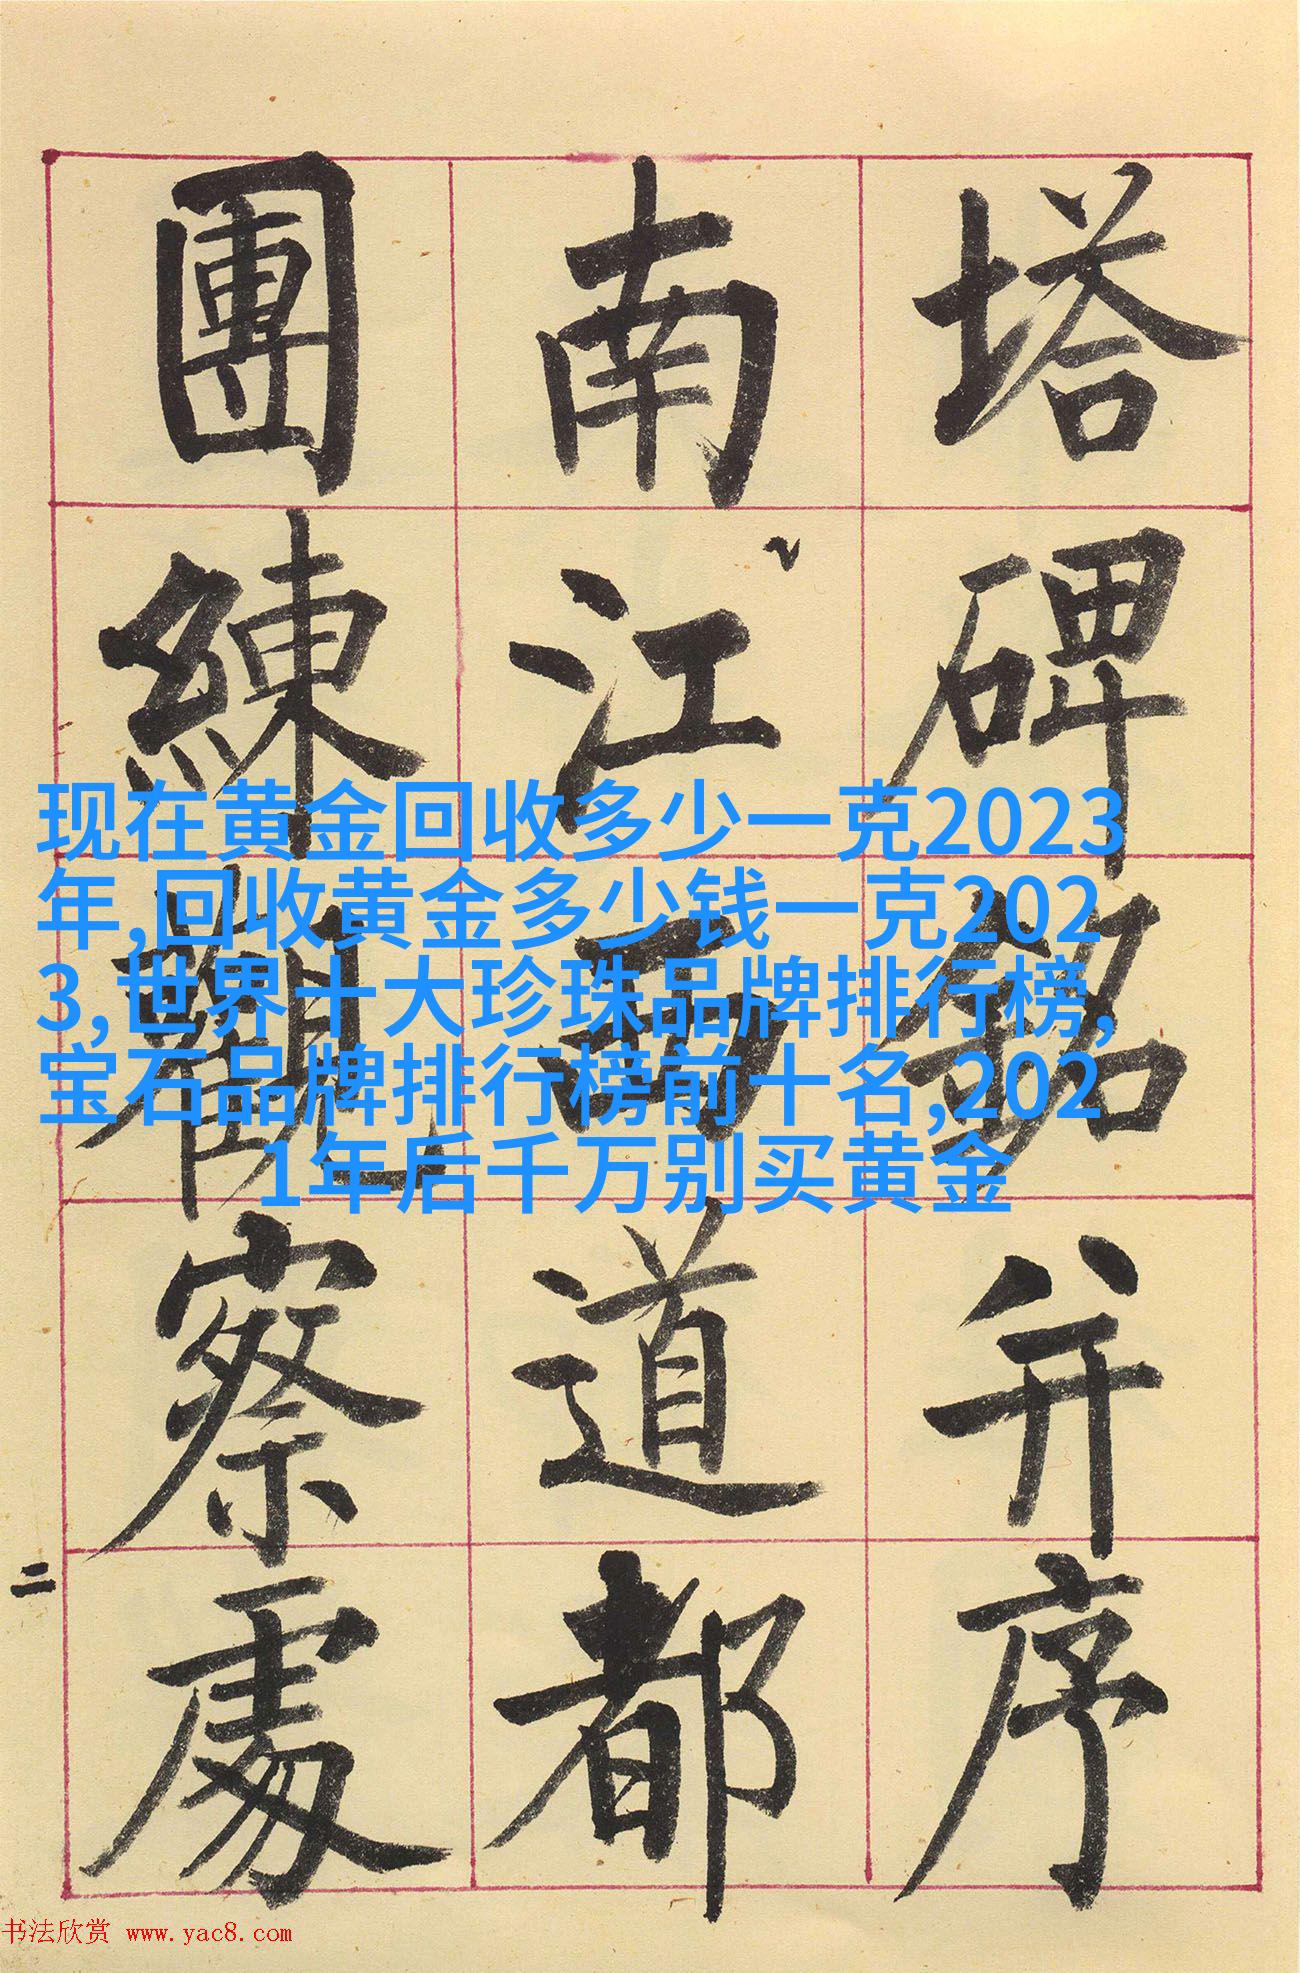 塔碑銘并序
南江西道都
團練觀察處
二
现在黄金回收多少一克2023
年,回收黄金多少钱一克202
3,世界十大珍珠品牌排行榜,
宝石品牌排行榜前十名,202
1年后千万别买黄金
书法欣赏 www.yac8.com